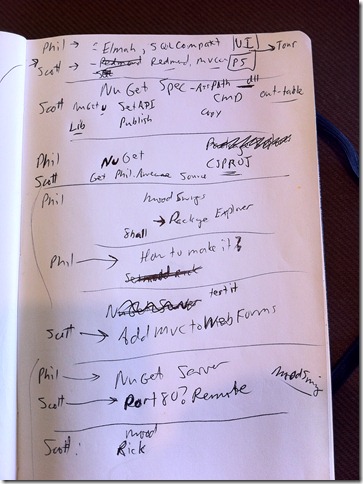 Phil → Elmah, SQL Compact UI → Tour
Scott → Redmond, mvc PS
NuGet Spec - AssPath dll
Scott NuGet u SetAPI Cmd out-table
Lib Publish Copy
Phil NuGet
Scott Get Phil. Source CSPROJ
Phil Mood Swings
→ Package Explorer
Shall
Phil → How to make it?
test it
Scott → Add MVC to WebForms
Phil → NuGet Server
Mood Swing
Scott → Port 80? Remote
Mood
Scott: Rick